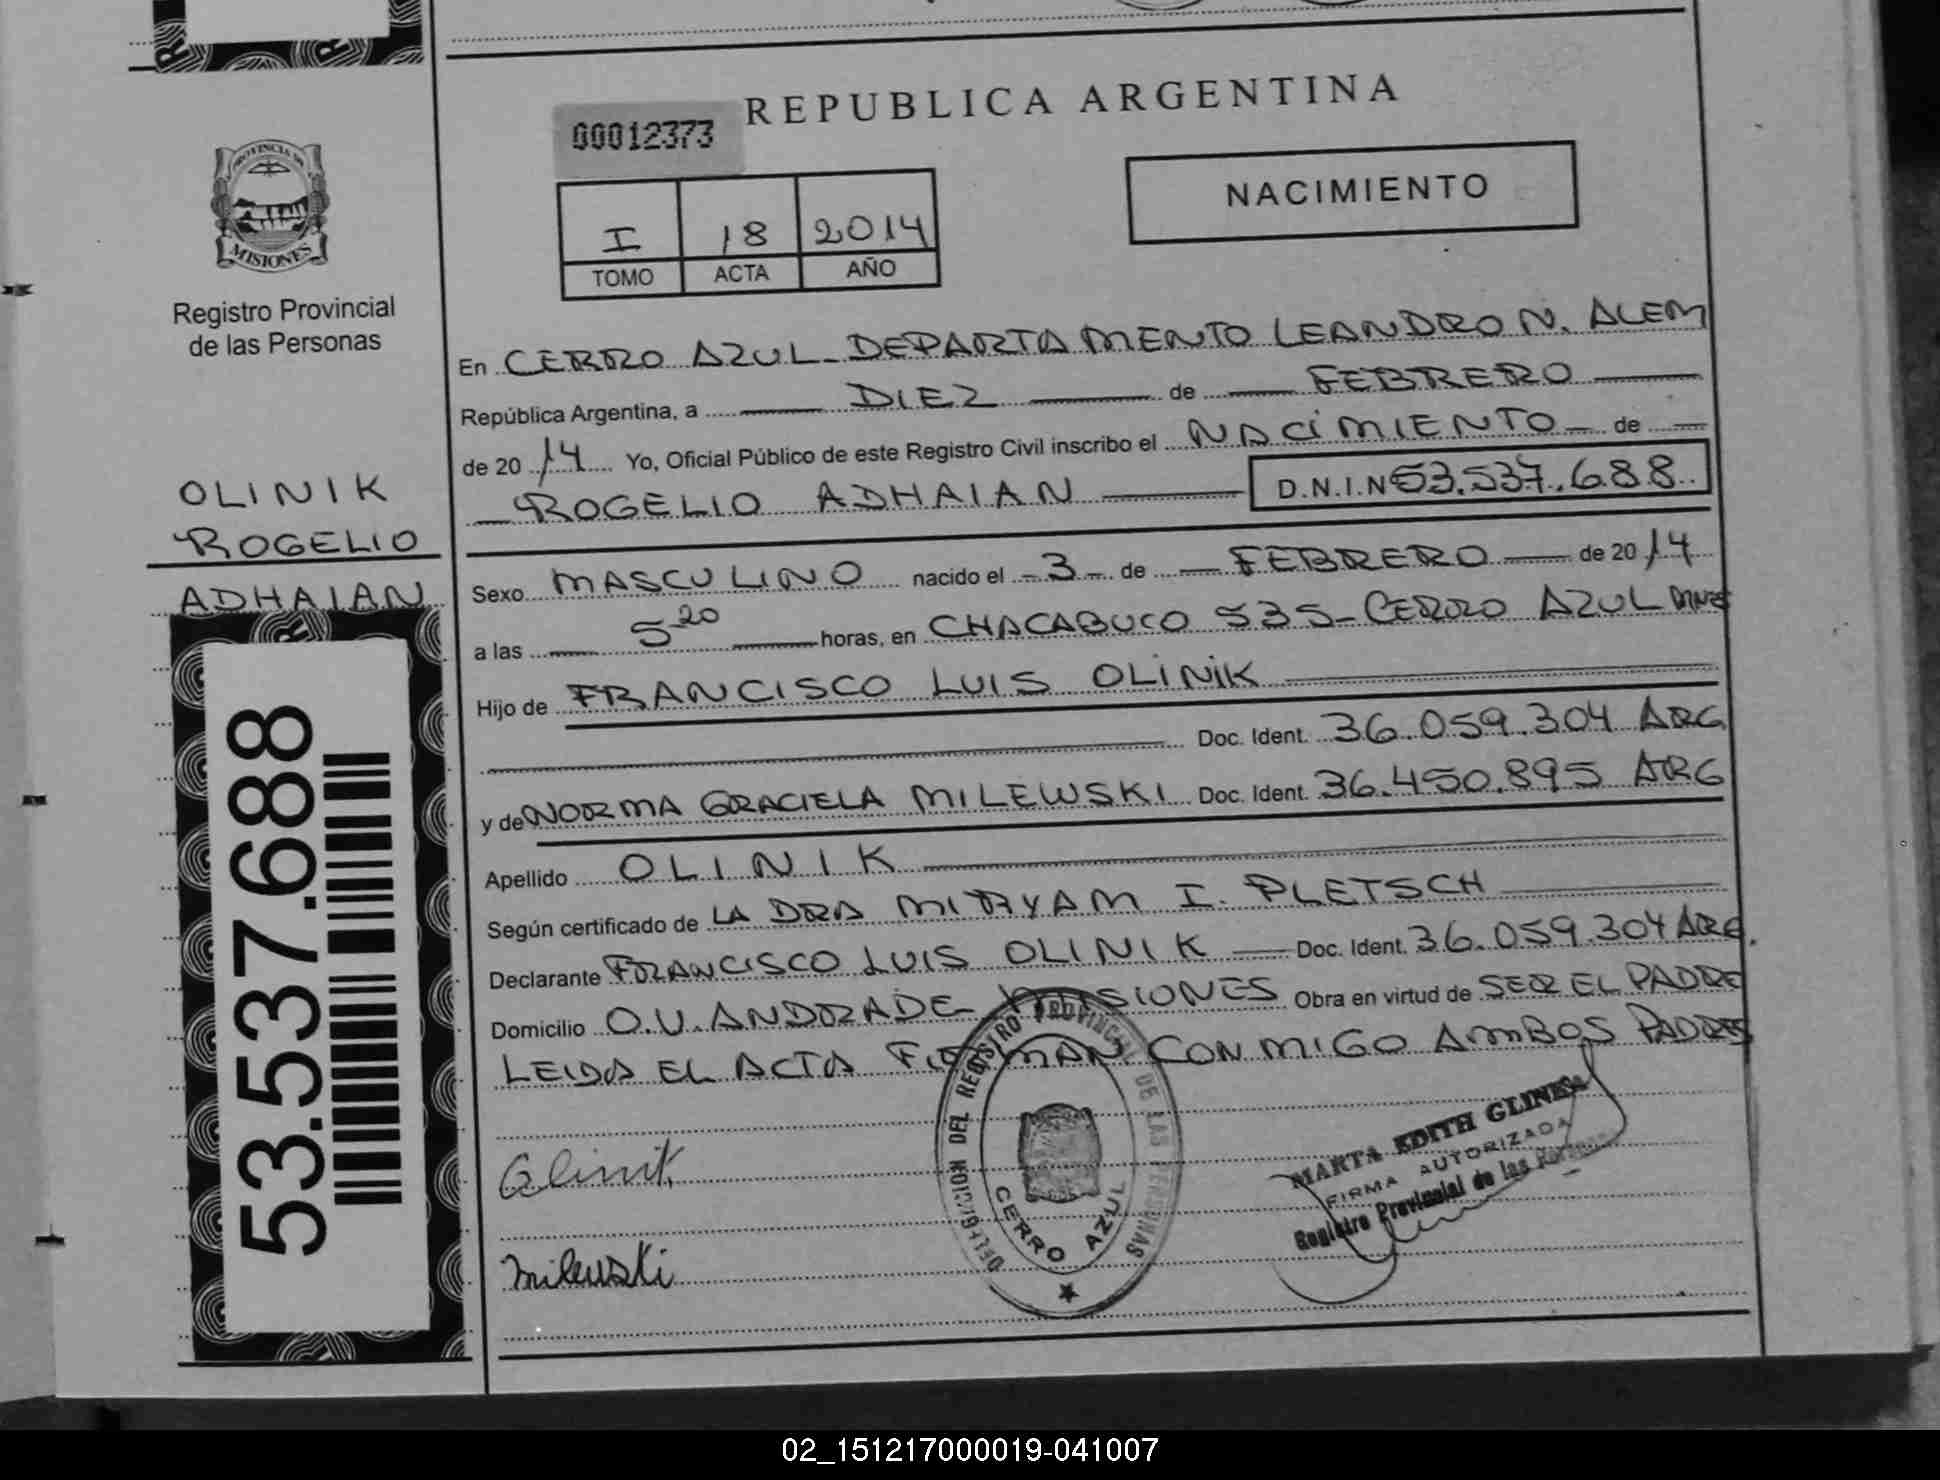 REPUBLICA ARGENTINA
00012373
NACIMIENTO
I 18 2014
TOMO ACTA AÑO
PROVINCIA DE
MISIONES
Registro Provincial
de las Personas
OLINIK
ROGELIO
ADHAIAN
53.537.688
En CERRO AZUL - DEPARTAMENTO LEANDRO N. ALEM
República Argentina, a DIEZ de FEBRERO
de 20 14 Yo, Oficial Público de este Registro Civil inscribo el NACIMIENTO de
ROGELIO ADHAIAN D.N.I.Nº 53.537.688
Sexo MASCULINO nacido el -3- de FEBRERO de 20 14
a las 5.20 horas, en CHACABUCO 535 - CERRO AZUL MNES
Hijo de FRANCISCO LUIS OLINIK
Doc. Ident. 36.059.304 ARG
y de NORMA GRACIELA MILEWSKI Doc. Ident. 36.450.895 ARG
Apellido OLINIK
Según certificado de LA DRA MIRYAM I. PLETSCH
Declarante FRANCISCO LUIS OLINIK Doc. Ident. 36.059.304 ARG.
Domicilio O.V. ANDRADE MISIONES Obra en virtud de SER EL PADRE
LEIDA EL ACTA FIRMAN CONMIGO AMBOS PADRES
Olinik
Milewski
DELEGACION DEL REGISTRO PROVINCIAL DE LAS PERSONAS
CERRO AZUL
MARTA EDITH GLINKA
FIRMA AUTORIZADA
Registro Provincial de las Personas
02_151217000019-041007